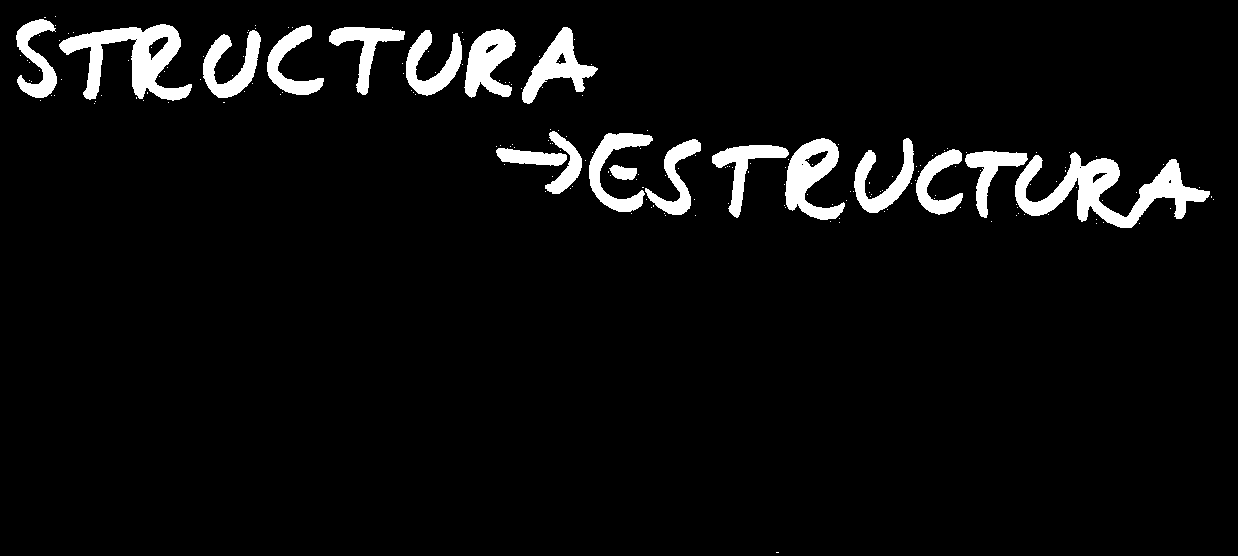 STRUCTURA
→ESTRUCTURA